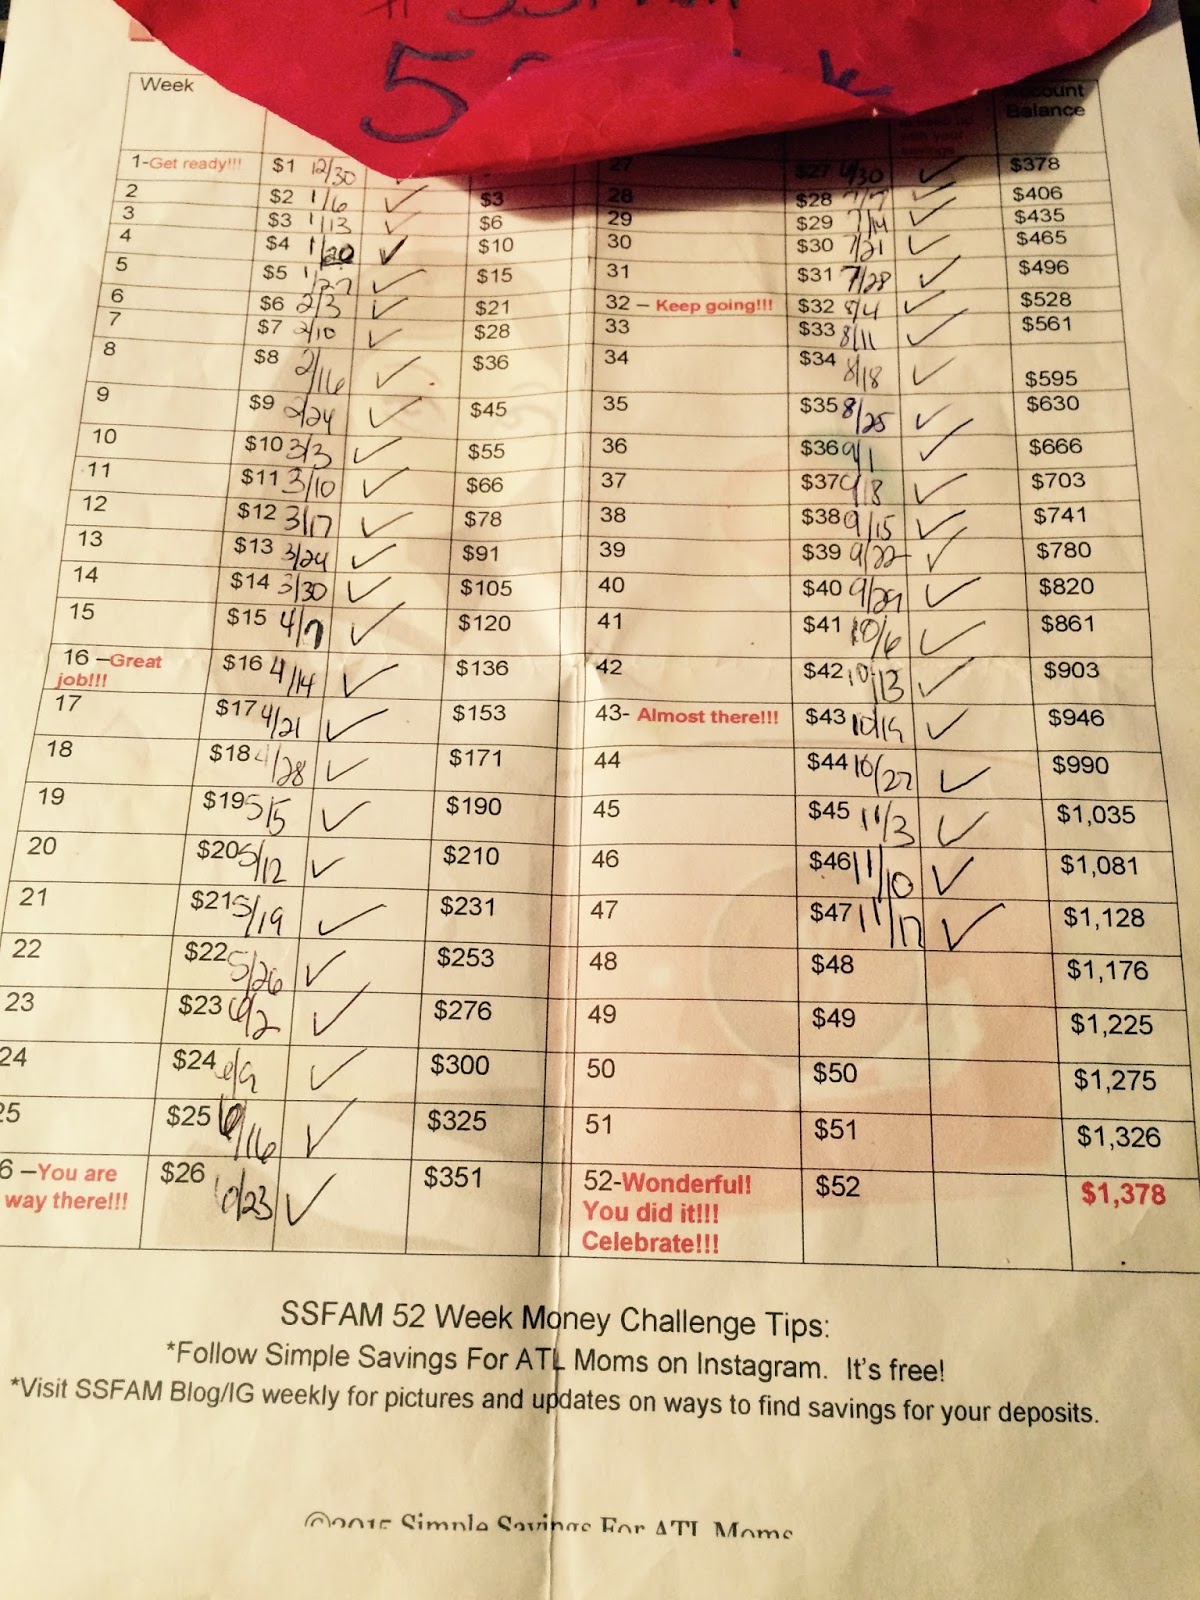 5
Week
Account
Balance
in your
1-Get ready!!! $1 12/30 ✓ 27 $27 6/30 ✓ $378
2 $2 1/6 ✓ $3 28 $28 7/7 ✓ $406
3 $3 1/13 ✓ $6 29 $29 7/14 ✓ $435
4 $4 1/20 ✓ $10 30 $30 7/21 ✓ $465
5 $5 1/27 ✓ $15 31 $31 7/28 ✓ $496
6 $6 2/3 ✓ $21 32 – Keep going!!! $32 8/4 ✓ $528
7 $7 2/10 ✓ $28 33 $33 8/11 ✓ $561
8 $8 2/16 ✓ $36 34 $34 8/18 ✓ $595
9 $9 2/24 ✓ $45 35 $35 8/25 ✓ $630
10 $10 3/3 ✓ $55 36 $36 9/1 ✓ $666
11 $11 3/10 ✓ $66 37 $37 ✓ $703
12 $12 3/17 ✓ $78 38 $38 9/15 ✓ $741
13 $13 3/24 ✓ $91 39 $39 9/22 ✓ $780
14 $14 3/30 ✓ $105 40 $40 9/29 ✓ $820
15 $15 4/7 ✓ $120 41 $41 10/6 ✓ $861
16 –Great $16 4/14 ✓ $136 42 $42 10/13 ✓ $903
job!!!
17 $17 4/21 ✓ $153 43- Almost there!!! $43 10/19 ✓ $946
18 $18 4/28 ✓ $171 44 $44 10/27 ✓ $990
19 $19 5/5 ✓ $190 45 $45 11/3 ✓ $1,035
20 $20 5/12 ✓ $210 46 $46 11/10 ✓ $1,081
21 $21 5/19 ✓ $231 47 $47 11/17 ✓ $1,128
22 $22 5/26 ✓ $253 48 $48 $1,176
23 $23 6/2 ✓ $276 49 $49 $1,225
24 $24 6/9 ✓ $300 50 $50 $1,275
25 $25 6/16 ✓ $325 51 $51 $1,326
6 –You are $26 6/23 ✓ $351 52-Wonderful! $52 $1,378
way there!!! You did it!!!
Celebrate!!!
SSFAM 52 Week Money Challenge Tips:
*Follow Simple Savings For ATL Moms on Instagram. It's free!
*Visit SSFAM Blog/IG weekly for pictures and updates on ways to find savings for your deposits.
©2015 Simple Savings For ATL Moms